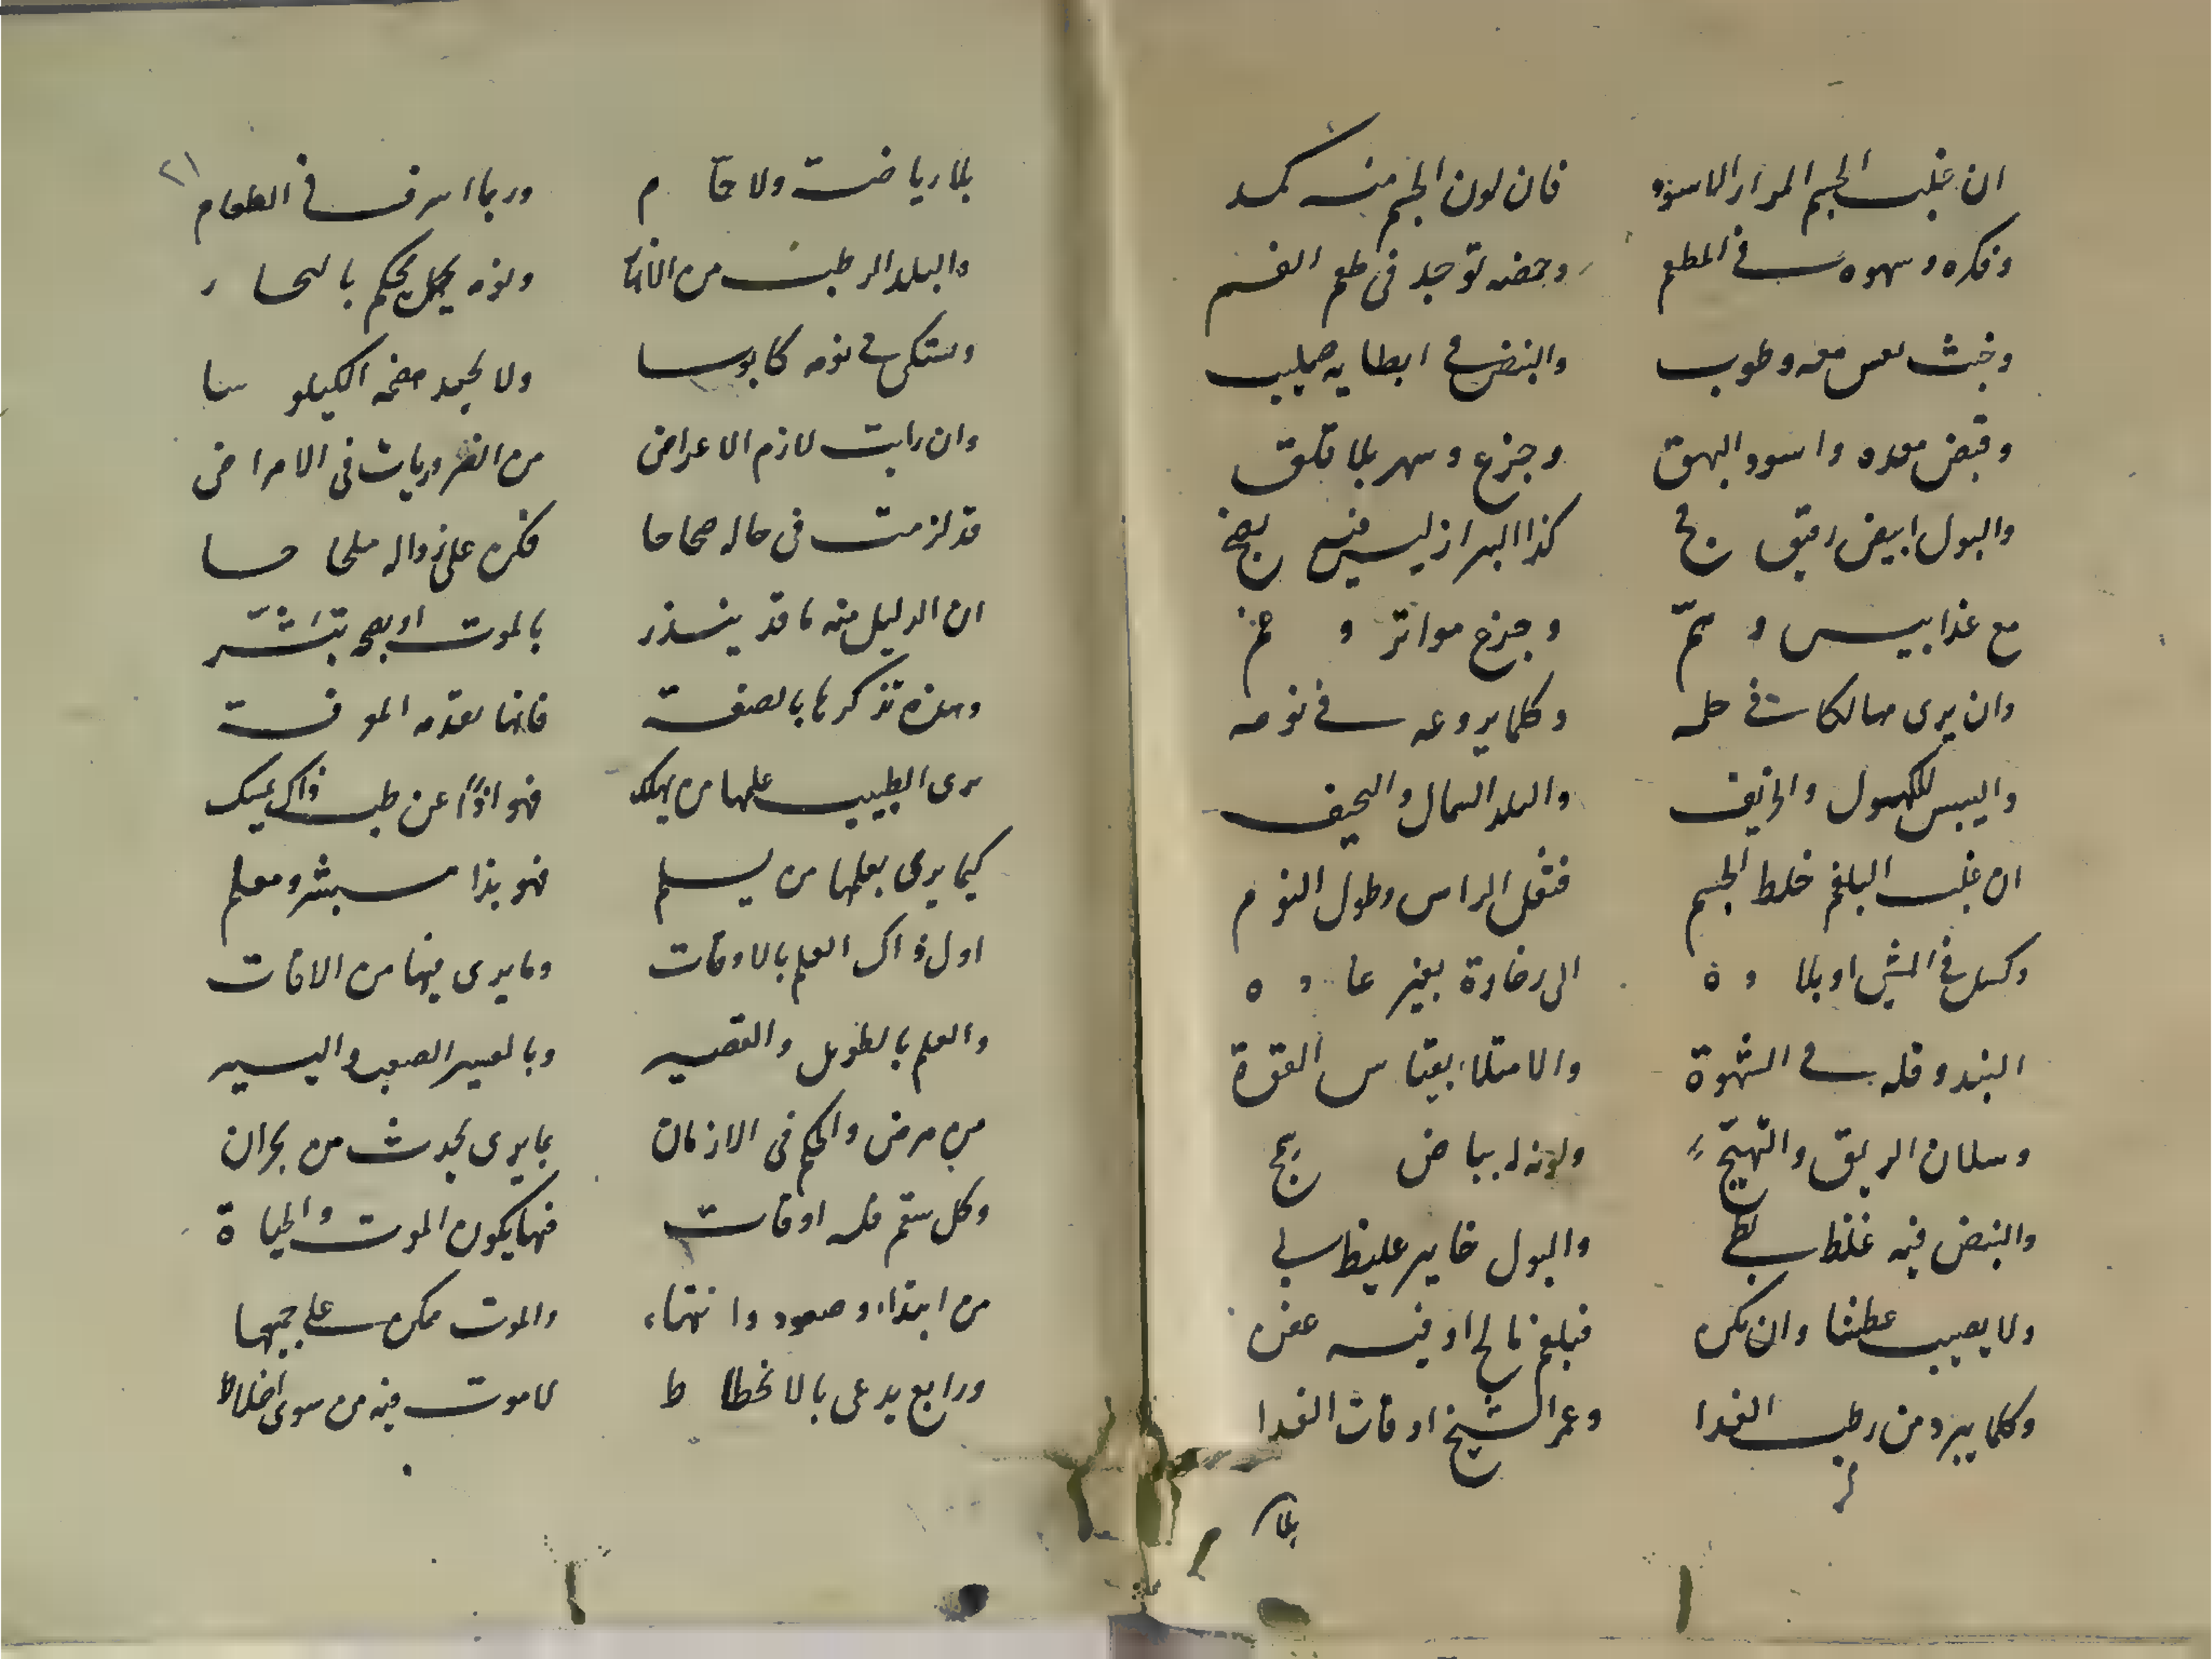 ان غلب الجسم المرار الاسود فان لون الجسم منه كمد
وفكره وسهوه في المطعم وحمضه توجد في طعم الفم
وخبث نفس معه وطوب والنبض في ابطايه صليب
وقبض معده واسود البهق وجزع وسهر بلا قلق
والبول ابيض رقيق فج كذا البراز ليس فيه نضج
مع غذا يبس و وجزع مواتر و
وان يرى مهالكا في حلمه وكلما يروعه في نومه
واليبس للكهول والخريف والبلد الشمال والنحيف
ان غلب البلغم خلط الجسم فثقل الراس وطول النوم
وكسل في المشي او بلا و ة الى رخاوة بغير عا د ه
البدو قله في الشهوة والامتلاء بقياس القوة
وسلان الريق والتهيج ولونه لبياض
والنبض فيه غلظ بطي والبول خاير غليظ ني
ولا يصيب عطشا وان يكن فبلغم مالح او فيه عفن
وكلما يبرد من رطب الغدا وعمر الشيخ اوقات الغدا
بلا
٢١
بلا رياضت ولا حما م وربما اسرف في الطعام
والبلد الرطب من الانهار ونومه يحكم بالبخا ر
وستكى في نومه كابوسا ولا يجيد هضمه الكيلو سا
وان رايت لازم الاعراض من الضروريات في الامراض
قد لزمت في حاله صحاحا فكن على زواله ملحا حا
ان الدليل منه ما قد ينذر بالموت او بصحه تبشر
وهذه تذكرها بالصفة فانها تقدمه المعرفة
يرى الطبيب علمها من يهلك فهو اذا عن طب ذاك يمسك
كيما يرى بعلمها من يسلم فهو بذا مبشر ومعلم
اول ذاك العلم بالاوقات وما يرى فيها من الافات
والعلم بالطويل والقصير وبالعسير الصعب واليسير
من مرض والحكم في الازمان بما يرى يحدث من بحران
وكل سقم فله اوقات فيها يكون الموت والحياة
من ابتداء وصعود وانتهاء والموت ممكن على جميعها
ورابع يدعى بالانحطا ط لا موت فيه من سوى اخلاط